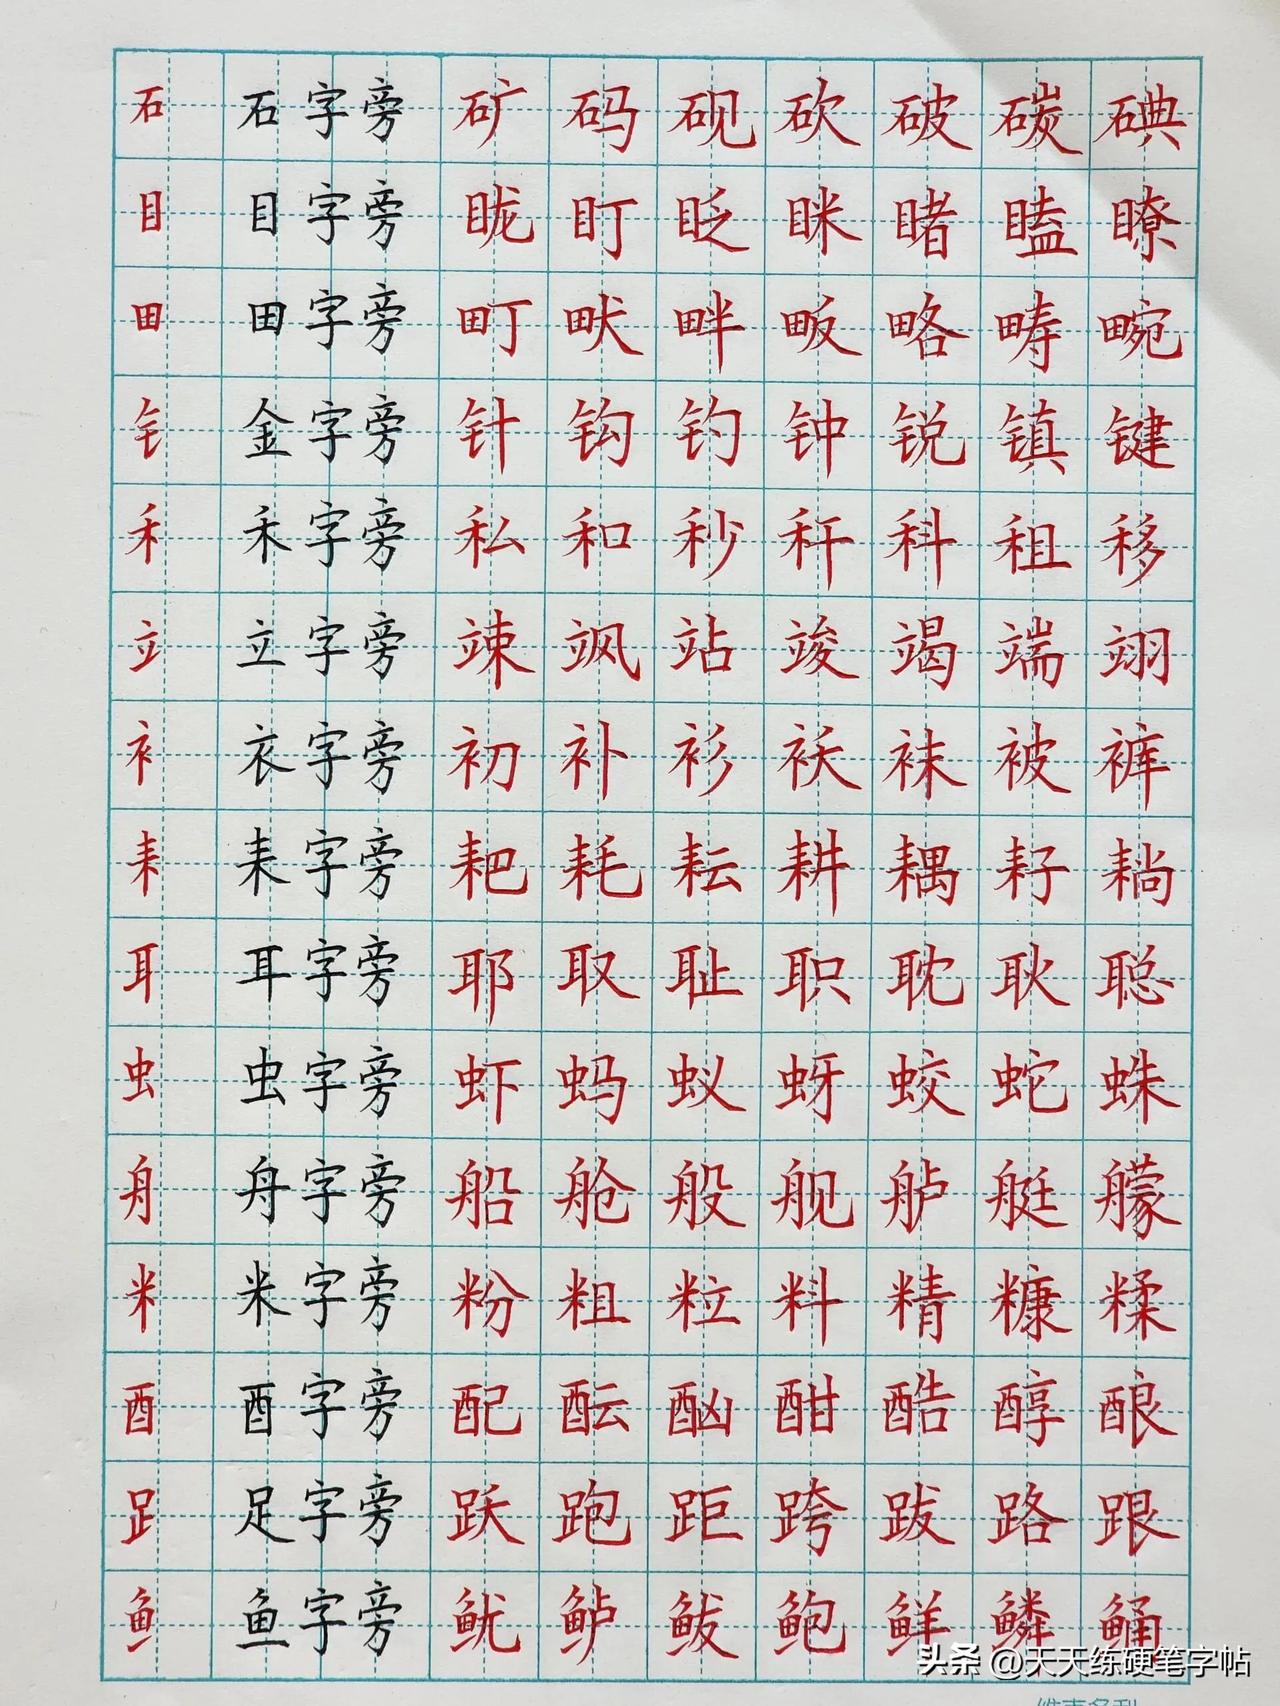 石 石字旁 矿 码 砚 砍 破 碳 碘
目 目字旁 眬 盯 眨 眯 睹 瞌 瞭
田 田字旁 町 畎 畔 畈 略 畴 畹
钅 金字旁 针 钩 钓 钟 锐 镇 键
禾 禾字旁 私 和 秒 秆 科 租 移
立 立字旁 竦 飒 站 竣 竭 端 翊
衤 衣字旁 初 补 衫 袄 袜 被 裤
耒 耒字旁 耙 耗 耘 耕 耦 耔 耥
耳 耳字旁 耶 取 耻 职 耽 耿 聪
虫 虫字旁 虾 蚂 蚁 蚜 蛟 蛇 蛛
舟 舟字旁 船 舱 般 舰 舻 艇 艨
米 米字旁 粉 粗 粒 料 精 糠 糅
酉 酉字旁 配 酝 酗 酣 酷 醇 酿
𧾷 足字旁 跃 跑 距 跨 跋 路 跟
鱼 鱼字旁 鱿 鲈 鲅 鲍 鲜 鳞 鲬
头条 @天天练硬笔字帖